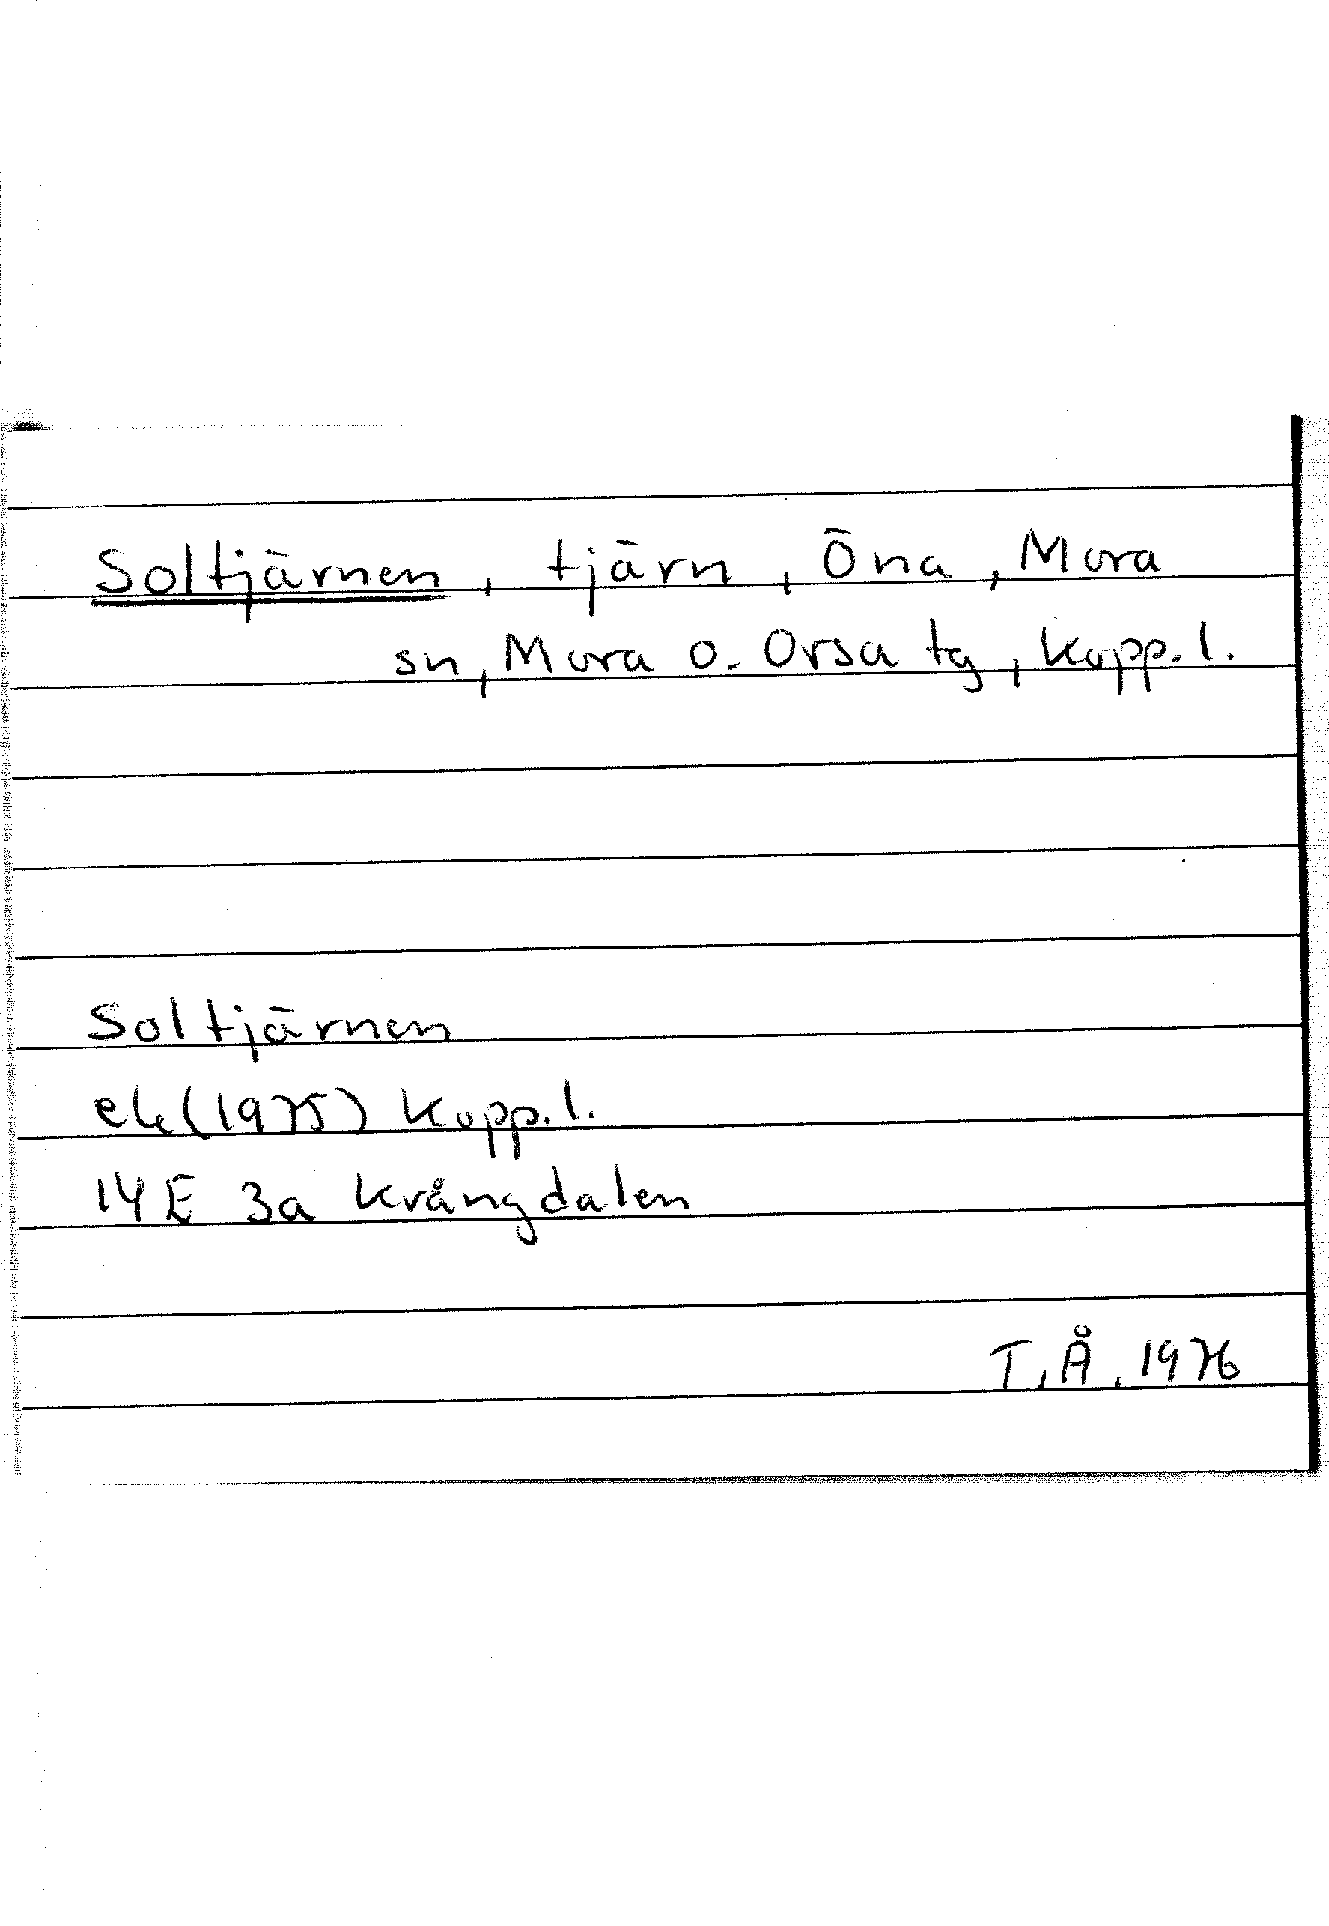 Soltjärnen, tjärn, Öna, Mora
sn, Mora o. Orsa tg, Kopp. l.
Soltjärnen
ek (1975) Kopp. l.
14E 3a Krångdalen
T. Å. 1976